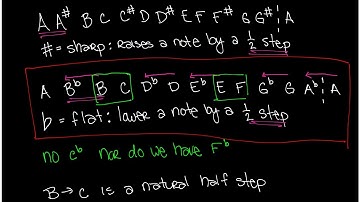 A A# B C C# D D# E F F# G G# A
# = sharp: raises a note by a 1/2 step
A Bb B C Db D Eb E F Gb G Ab A
b = flat: lower a note by a 1/2 step
no Cb nor do we have Fb
B → C is a natural half step